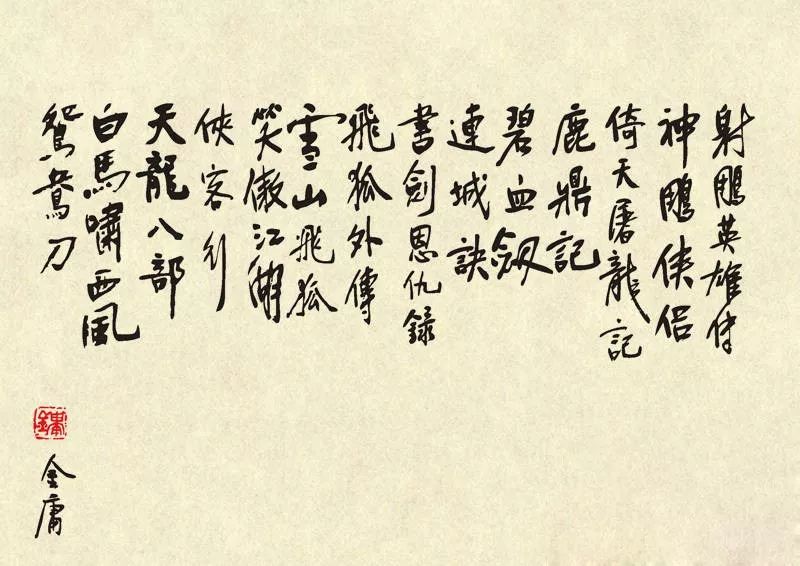 射鵰英雄传
神鵰侠侣
倚天屠龍記
鹿鼎記
碧血劔
連城訣
書劍恩仇錄
飛狐外傳
雪山飛狐
笑傲江湖
俠客行
天龍八部
白馬嘯西風
鴛鴦刀
金庸